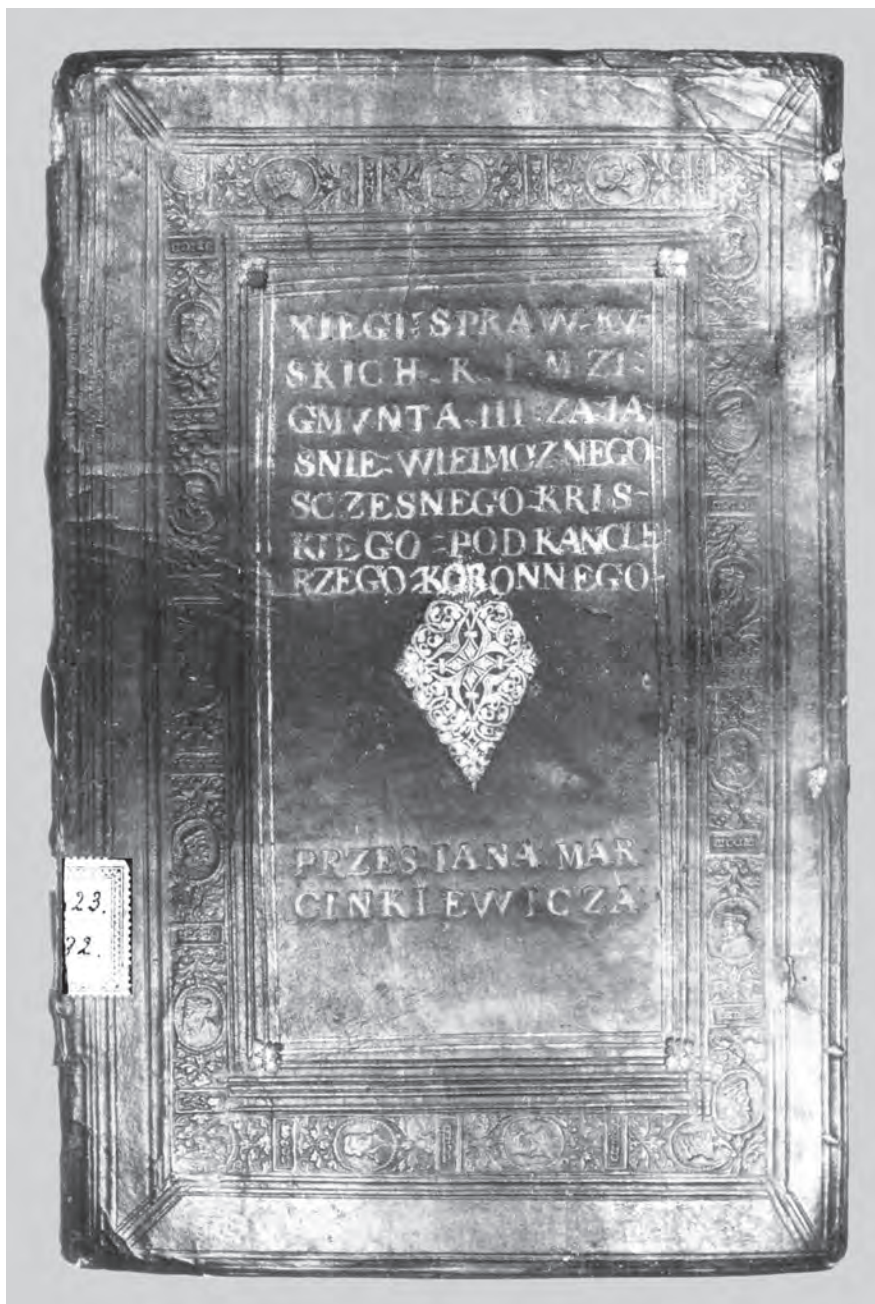 XIEGI SPRAW RV-
SKICH K I M ZI-
GMVNTA III ZA JA-
SNIE WIELMOZNEGO
SCZESNEGO KRIS-
KIEGO PODKANCLE
RZEGO KORONNEGO
PRZES IANA MAR
CINKIEWICZA
23.
92.